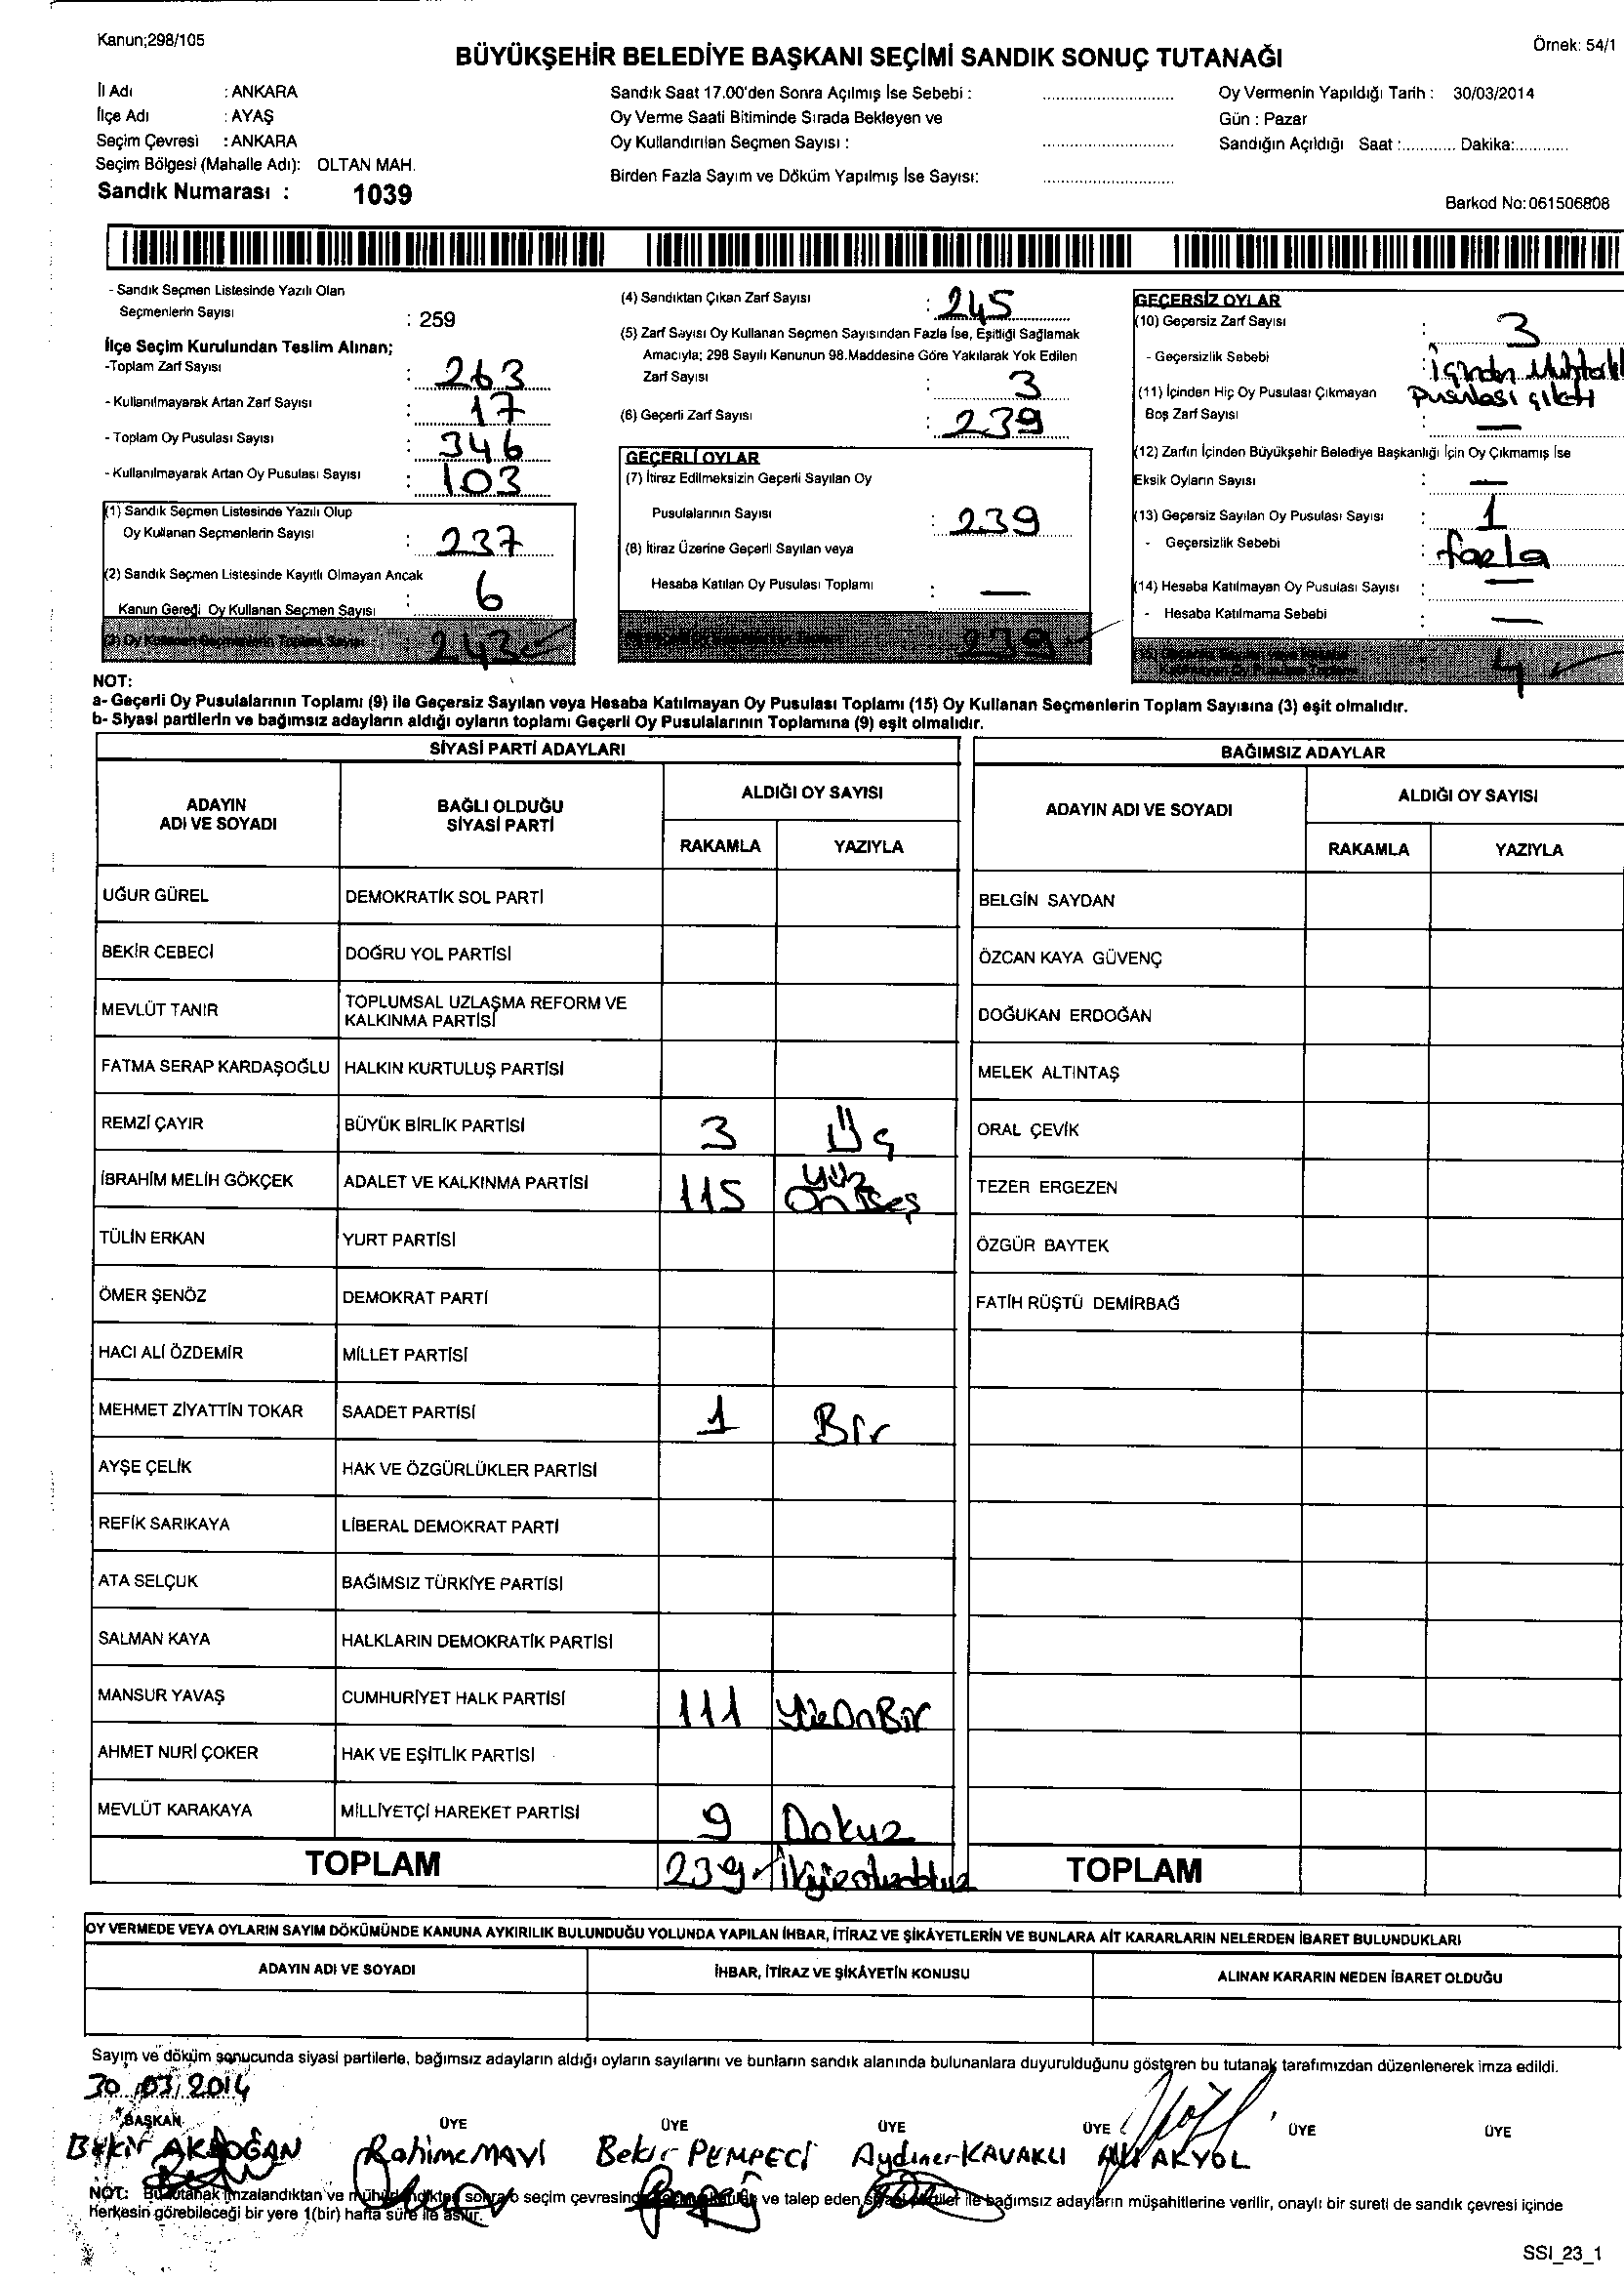 Kanun;298/105
Örnek: 54/1
BÜYÜKŞEHİR BELEDİYE BAŞKANI SEÇİMİ SANDIK SONUÇ TUTANAĞI
İl Adı : ANKARA
İlçe Adı : AYAŞ
Seçim Çevresi : ANKARA
Seçim Bölgesi (Mahalle Adı): OLTAN MAH.
Sandık Numarası : 1039
Sandık Saat 17.00'den Sonra Açılmış İse Sebebi :
Oy Verme Saati Bitiminde Sırada Bekleyen ve
Oy Kullandırılan Seçmen Sayısı :
Birden Fazla Sayım ve Döküm Yapılmış İse Sayısı:
Oy Vermenin Yapıldığı Tarih : 30/03/2014
Gün : Pazar
Sandığın Açıldığı Saat :........... Dakika:...........
Barkod No:061506808
- Sandık Seçmen Listesinde Yazılı Olan
Seçmenlerin Sayısı : 259
İlçe Seçim Kurulundan Teslim Alınan;
-Toplam Zarf Sayısı : 263
- Kullanılmayarak Artan Zarf Sayısı : 17
- Toplam Oy Pusulası Sayısı : 346
- Kullanılmayarak Artan Oy Pusulası Sayısı : 103
(1) Sandık Seçmen Listesinde Yazılı Olup
Oy Kullanan Seçmenlerin Sayısı : 237
(2) Sandık Seçmen Listesinde Kayıtlı Olmayan Ancak
Kanun Gereği Oy Kullanan Seçmen Sayısı : 6
(3) Oy Kullanan Seçmenlerin Toplam Sayısı : 243
(4) Sandıktan Çıkan Zarf Sayısı : 245
(5) Zarf Sayısı Oy Kullanan Seçmen Sayısından Fazla İse, Eşitliği Sağlamak
Amacıyla; 298 Sayılı Kanunun 98.Maddesine Göre Yakılarak Yok Edilen
Zarf Sayısı : 3
(6) Geçerli Zarf Sayısı : 239
GEÇERLİ OYLAR
(7) İtiraz Edilmeksizin Geçerli Sayılan Oy
Pusulalarının Sayısı : 239
(8) İtiraz Üzerine Geçerli Sayılan veya
Hesaba Katılan Oy Pusulası Toplamı : —
239
GEÇERSİZ OYLAR
(10) Geçersiz Zarf Sayısı : 3
- Geçersizlik Sebebi : İçinden Muhtarlık
pusulası çıktı
(11) İçinden Hiç Oy Pusulası Çıkmayan
Boş Zarf Sayısı : —
(12) Zarfın İçinden Büyükşehir Belediye Başkanlığı İçin Oy Çıkmamış İse
Eksik Oyların Sayısı : —
(13) Geçersiz Sayılan Oy Pusulası Sayısı : 1
- Geçersizlik Sebebi : fazla
(14) Hesaba Katılmayan Oy Pusulası Sayısı : —
- Hesaba Katılmama Sebebi : —
4
NOT:
a- Geçerli Oy Pusulalarının Toplamı (9) ile Geçersiz Sayılan veya Hesaba Katılmayan Oy Pusulası Toplamı (15) Oy Kullanan Seçmenlerin Toplam Sayısına (3) eşit olmalıdır.
b- Siyasi partilerin ve bağımsız adayların aldığı oyların toplamı Geçerli Oy Pusulalarının Toplamına (9) eşit olmalıdır.
SİYASİ PARTİ ADAYLARI
ADAYIN ADI VE SOYADI BAĞLI OLDUĞU SİYASİ PARTİ ALDIĞI OY SAYISI
RAKAMLA YAZIYLA
UĞUR GÜREL DEMOKRATİK SOL PARTİ
BEKİR CEBECİ DOĞRU YOL PARTİSİ
MEVLÜT TANIR TOPLUMSAL UZLAŞMA REFORM VE KALKINMA PARTİSİ
FATMA SERAP KARDAŞOĞLU HALKIN KURTULUŞ PARTİSİ
REMZİ ÇAYIR BÜYÜK BİRLİK PARTİSİ 3 Üç
İBRAHİM MELİH GÖKÇEK ADALET VE KALKINMA PARTİSİ 115 Yüz OnBeş
TÜLİN ERKAN YURT PARTİSİ
ÖMER ŞENÖZ DEMOKRAT PARTİ
HACI ALİ ÖZDEMİR MİLLET PARTİSİ
MEHMET ZİYATTİN TOKAR SAADET PARTİSİ 1 Bir
AYŞE ÇELİK HAK VE ÖZGÜRLÜKLER PARTİSİ
REFİK SARIKAYA LİBERAL DEMOKRAT PARTİ
ATA SELÇUK BAĞIMSIZ TÜRKİYE PARTİSİ
SALMAN KAYA HALKLARIN DEMOKRATİK PARTİSİ
MANSUR YAVAŞ CUMHURİYET HALK PARTİSİ 111 YüzOnBir
AHMET NURİ ÇOKER HAK VE EŞİTLİK PARTİSİ
MEVLÜT KARAKAYA MİLLİYETÇİ HAREKET PARTİSİ 9 Dokuz
TOPLAM 239 İkiyüzotuzdokuz
BAĞIMSIZ ADAYLAR
ADAYIN ADI VE SOYADI ALDIĞI OY SAYISI
RAKAMLA YAZIYLA
BELGİN SAYDAN
ÖZCAN KAYA GÜVENÇ
DOĞUKAN ERDOĞAN
MELEK ALTINTAŞ
ORAL ÇEVİK
TEZER ERGEZEN
ÖZGÜR BAYTEK
FATİH RÜŞTÜ DEMİRBAĞ
TOPLAM
OY VERMEDE VEYA OYLARIN SAYIM DÖKÜMÜNDE KANUNA AYKIRILIK BULUNDUĞU YOLUNDA YAPILAN İHBAR, İTİRAZ VE ŞİKÂYETLERİN VE BUNLARA AİT KARARLARIN NELERDEN İBARET BULUNDUKLARI
ADAYIN ADI VE SOYADI İHBAR, İTİRAZ VE ŞİKÂYETİN KONUSU ALINAN KARARIN NEDEN İBARET OLDUĞU
Sayım ve döküm sonucunda siyasi partilerle, bağımsız adayların aldığı oyların sayılarını ve bunların sandık alanında bulunanlara duyurulduğunu gösteren bu tutanak tarafımızdan düzenlenerek imza edildi.
30/03/2014
BAŞKAN ÜYE ÜYE ÜYE ÜYE ÜYE ÜYE
Bekir AKDOĞAN Rahime MAVİ Bekir PEMPECİ Aydıner KAVAKLI Ali AKYOL
NOT: Bu tutanak imzalandıktan ve mühürlendikten sonra o seçim çevresinde ve talep eden siyasi partiler ile bağımsız adayların müşahitlerine verilir, onaylı bir sureti de sandık çevresi içinde
herkesin görebileceği bir yere 1(bir) hafta süre ile asılır.
SSI_23_1